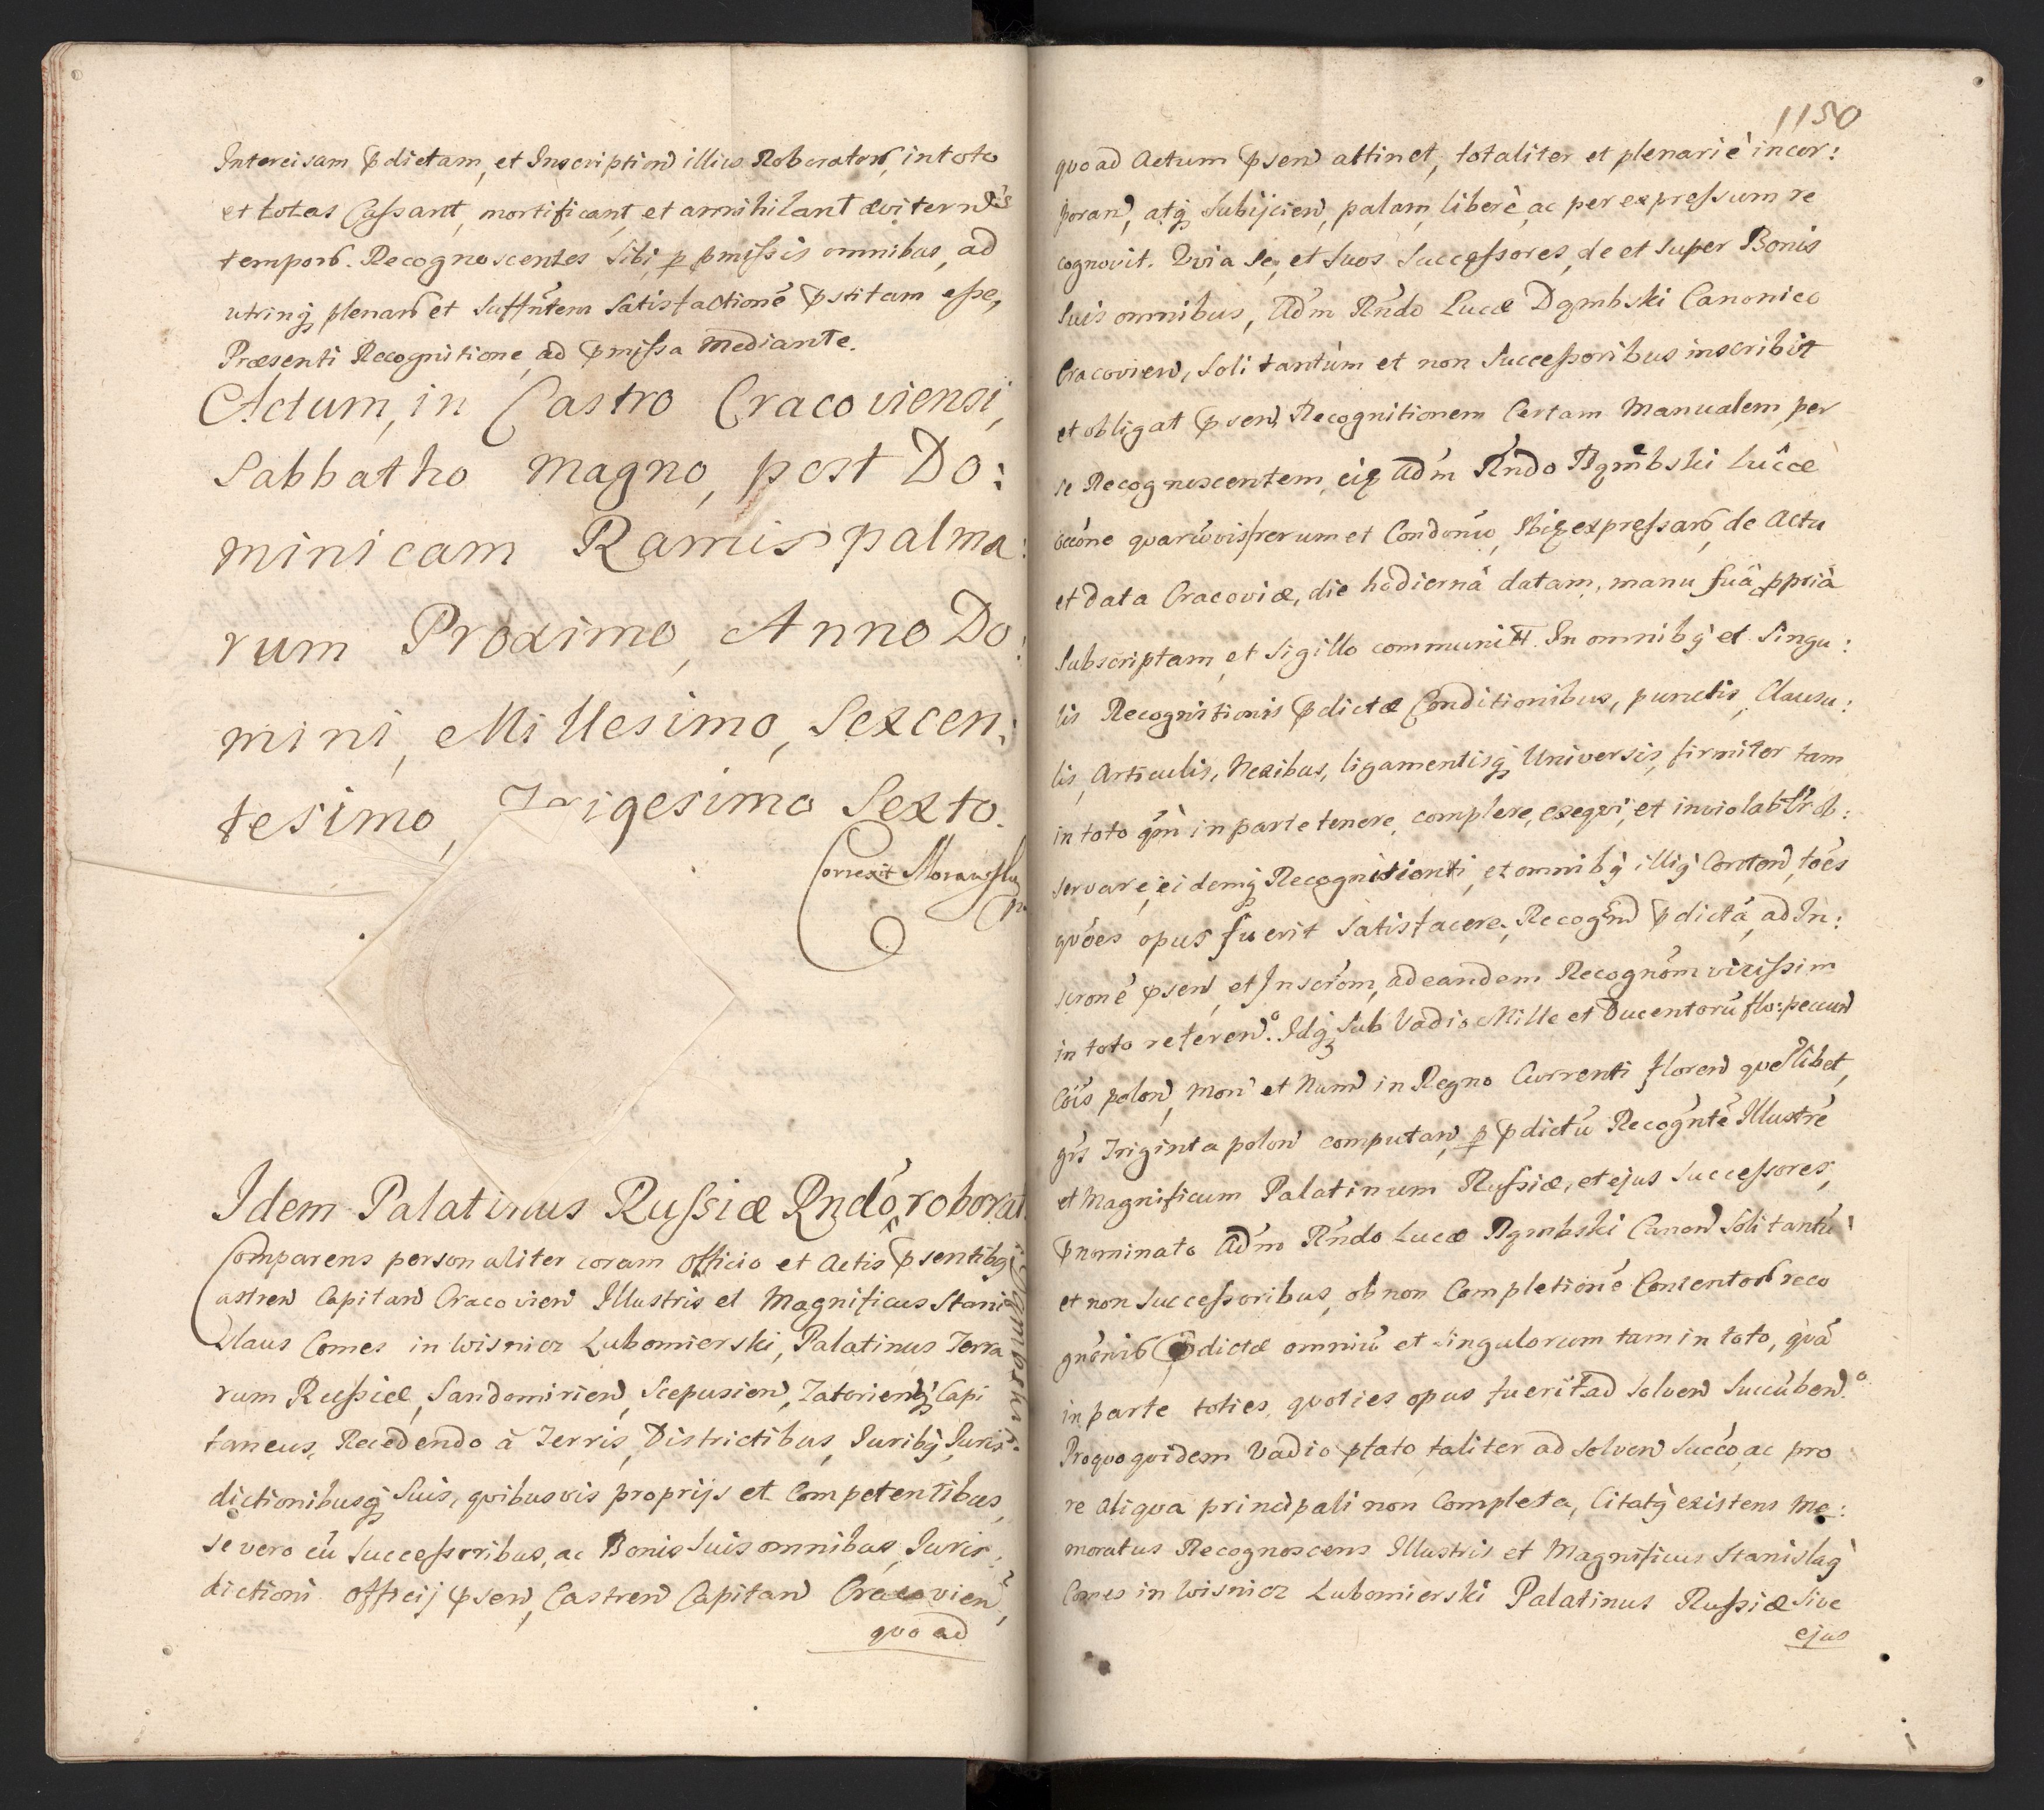 Intercisam ꝓdictam, et Inscriptioñ illius Roborator, in toto
et totas Cassant, mortificant, et annihilant æviternis
tempor. Recognoscentes Sibi, p pmissis omnibus, ad
utrinq plenar et Suffntem Satisfactionē pstitam esse,
Præsenti Recognitione, ad pmissa mediante.
Actum, in Castro Cracoviensi,
Sabbatho magno, post Do:
minicam Ramis palma:
rum Proximo, Anno Do:
mini, Millesimo, Sexcen:
tesimo, Trigesimo Sexto.
Correxit
Idem Palatinus Russiæ Rndo roborat.
Comparens personaliter coram Officio et Actis psentibq
Castren Capitan Cracovien Illustris et Magnificus Stani
slaus Comes in Wisnicz Lubomierski, Palatinus Terra
rum Russiæ, Sandomirien, Scepusien, Zatorienq Capi
taneus, Recedendo à Terris, Districtibus, Juribq, Juris
dictionibusq Suis, quibusvis proprijs et Competentibus,
se vero cū Successoribus, ac Bonis Suis omnibus, Juris:
dictioni Officij psen, Castren Capitan Cracovien,
quo ad
1150
quo ad Actum psen attinet, totaliter et plenariè incor:
poran, atq Subijcien, palam, liberè, ac per expressum re
cognovit. Quia Se, et Suos Successores, de et Super Bonis
Suis omnibus, Adm Rndo Lucæ Dąmbski Canonico
Cracovien, Soli tantùm et non Successoribus inscribit
et obligat psen, Recognitionem Certam Manualem, per
se Recognoscentem, eiq Adm Rndo Dąmbski Lucæ
quarūvis rerum et Condonu, Ibiq expressar, de Actu
et data Cracoviæ, die hodiernâ datam, manu suâ ppriâ
Subscriptam, et Sigillo communitt. In omnibq et Singu:
lis Recognitionis pdictæ Conditionibus, punctis, Clausu:
lis, Articulis, Nexibus, ligamentisq Universis, firmiter tam
in toto qm in parte tenere, complere, exequi, et inviolablr ob:
servare, eidemq Recognitionti, et omnibq illiq Conton, toēs
quoēs opus fuerit Satisfacere, Recognd pdictā, ad In:
scronē psen, et Inscrom, ad eandem Recognōm vicissim
in toto referen. Idq Sub Vadio Mille et Ducentorū flo: pecun
Cōis polon, mon et Num in Regno Currenti floren quēlibet,
grs Triginta polon computan, p pdictū Recogntē Illustrē
et Magnificum Palatinum Russiæ, et ejus Successores,
pnominato Adm Rndo Lucæ Dąmbski Canon Soli tantū
et non Successoribus, ob non Completionē Contentor reco
gnōnis pdictæ omniū et Singulorum tam in toto, quā
in parte toties, quoties opus fuerit ad Solven Succuben.
Pro quo quidem Vadio ptato taliter ad Solven Succo, ac pro
re aliqua principali non Completa, Citatq existens me:
moratus Recognoscens Illustris et Magnificus Stanislaq
Comes in Wisnicz Lubomierski Palatinus Russiæ Sive
ejus